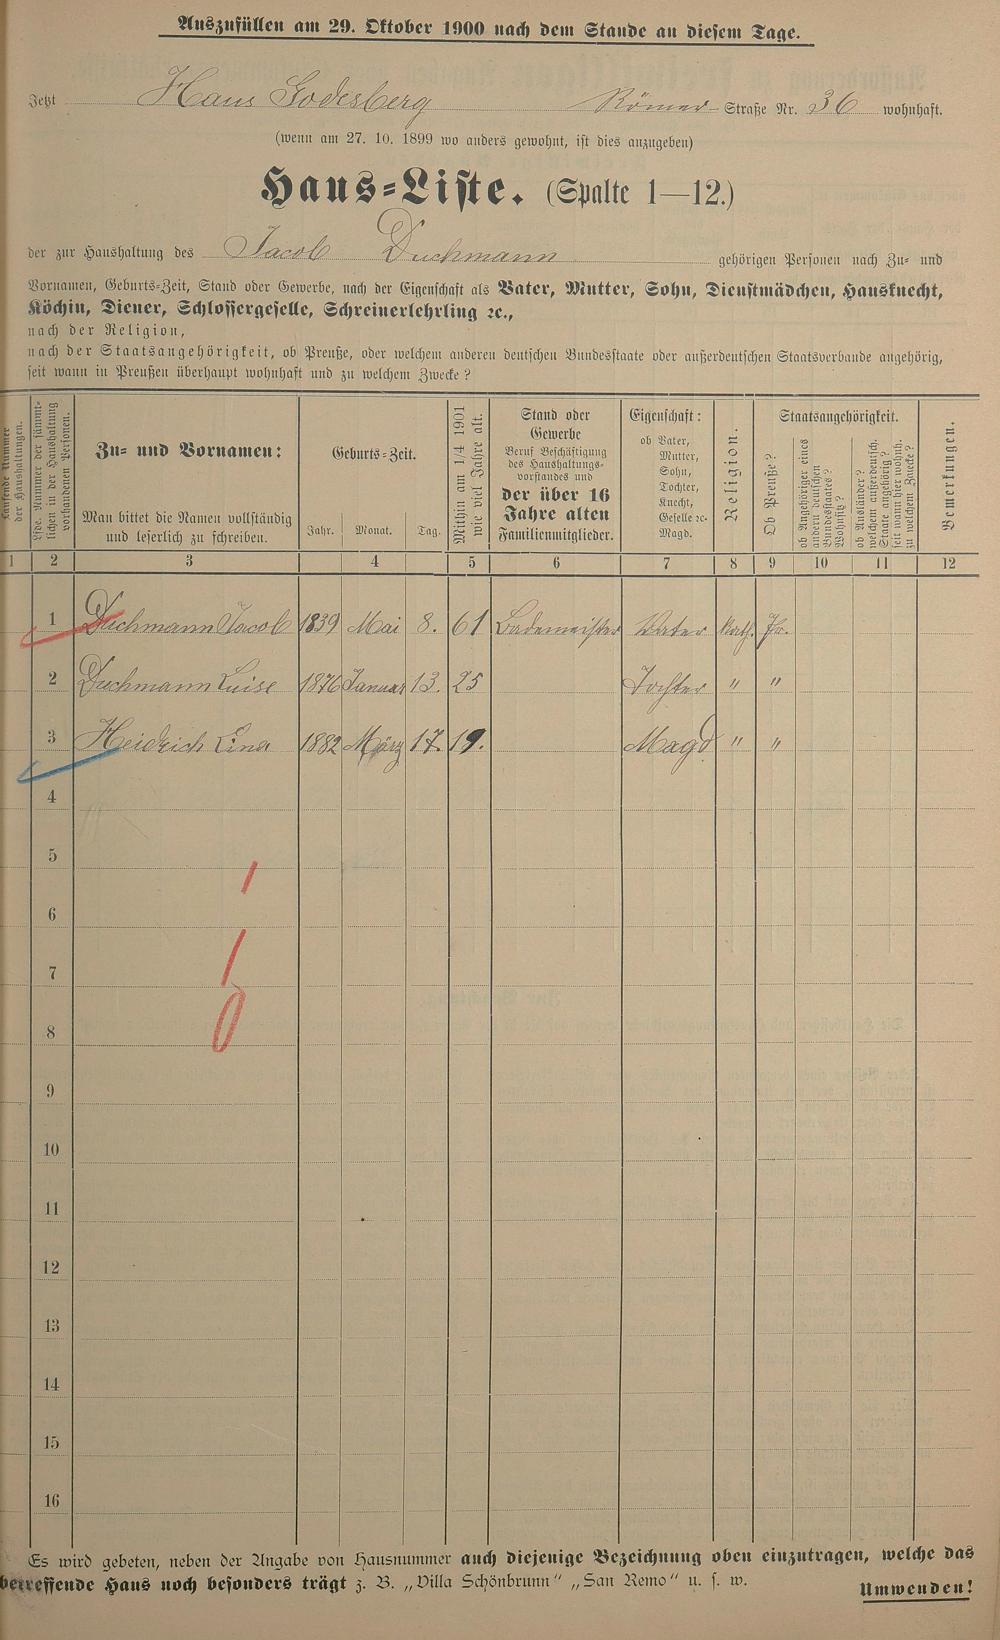 Auszufüllen am 29. Oktober 1900 nach dem Stande an diesem Tage.
Jetzt Haus Godesberg Römer-Straße Nr. 36 wohnhaft.
(wenn am 27. 10. 1899 wo anders gewohnt, ist dies anzugeben)
Haus-Liste. (Spalte 1—12.)
der zur Haushaltung des Jacob Duchmann gehörigen Personen nach Zu- und
Vornamen, Geburts-Zeit, Stand oder Gewerbe, nach der Eigenschaft als Vater, Mutter, Sohn, Dienstmädchen, Hausknecht,
Köchin, Diener, Schlossergeselle, Schreinerlehrling ꝛc.,
nach der Religion,
nach der Staatsangehörigkeit, ob Preuße, oder welchem anderen deutschen Bundesstaate oder außerdeutschen Staatsverbande angehörig,
seit wann in Preußen überhaupt wohnhaft und zu welchem Zwecke?
Laufende Nummer
der Haushaltungen.
Lfde. Nummer der sämmt-
lichen in der Haushaltung
vorhandenen Personen.
Zu- und Vornamen:
Man bittet die Namen vollständig
und leserlich zu schreiben.
Geburts-Zeit.
Jahr. Monat. Tag.
Mithin am 1/4 1901
wie viel Jahre alt.
Stand oder
Gewerbe
Beruf Beschäftigung
des Haushaltungs-
vorstandes und
der über 16
Jahre alten
Familienmitglieder.
Eigenschaft:
ob Vater,
Mutter,
Sohn,
Tochter,
Knecht,
Geselle ꝛc.
Magd.
Religion.
Staatsangehörigkeit.
Ob Preuße?
ob Angehöriger eines
andern deutschen
Bundesstaates?
Wohnsitz?
ob Ausländer?
welchem außerdeutsch.
Staate angehörig?
seit wann hier wohnh.
zu welchem Zwecke?
Bemerkungen.
1 2 3 4 5 6 7 8 9 10 11 12
1 Duchmann Jacob 1839 Mai 8. 61 Bademeister Vater kath. Pr.
2 Duchmann Luise 1876 Januar 13. 25 Tochter " "
3 Heidrich Lina 1882 März 17. 19. Magd " "
4
5
6
7
8
9
10
11
12
13
14
15
16
Es wird gebeten, neben der Angabe von Hausnummer auch diejenige Bezeichnung oben einzutragen, welche das
betreffende Haus noch besonders trägt z. B. „Villa Schönbrunn" „San Remo" u. s. w.
Umwenden!